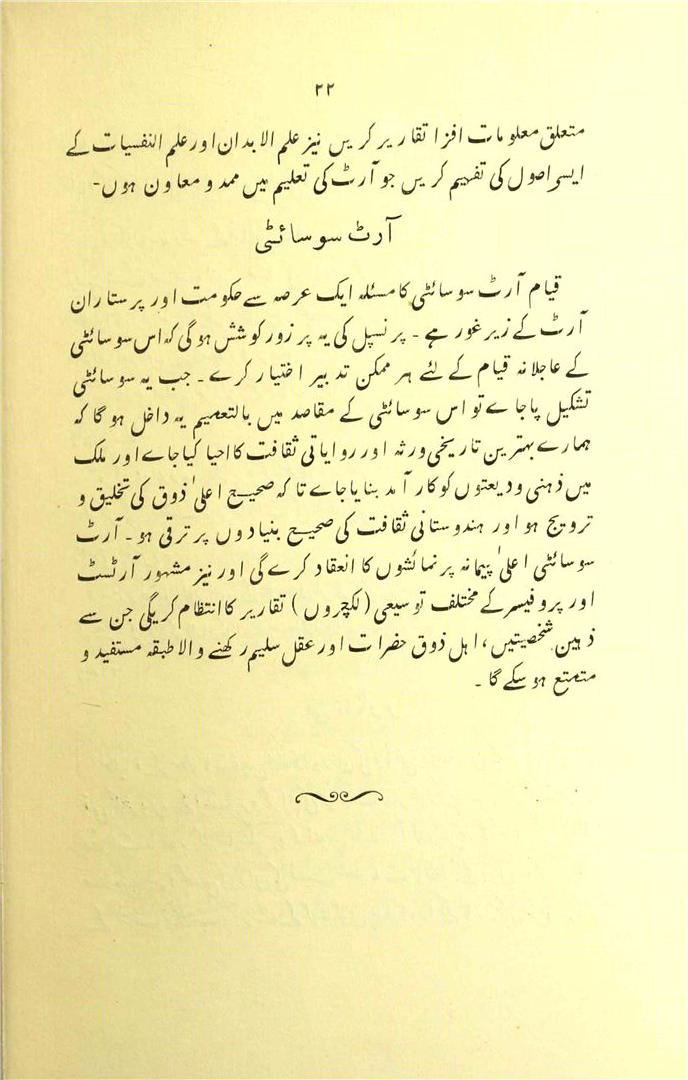 ۲۲
متعلق معلومات افزا تقاریر کریں نیز علم الابدان اور علم النفسیات کے
ایسے اصول کی تفہیم کریں جو آرٹ کی تعلیم میں ممد و معاون ہوں-
آرٹ سوسائٹی
قیام آرٹ سوسائٹی کا مسئلہ ایک عرصہ سے حکومت اور پرستاران
آرٹ کے زیر غور ہے ۔ پرنسپل کی یہ پر زور کوشش ہوگی کہ اس سوسائٹی
کے عاجلانہ قیام کے لئے ہر ممکن تدبیر اختیار کرے ۔ جب یہ سوسائٹی
تشکیل پاجاے تو اس سوسائٹی کے مقاصد میں بالتعمیم یہ داخل ہوگا کہ
ہمارے بہترین تاریخی ورثہ اور روایاتی ثقافت کا احیا کیا جاے اور ملک
میں ذہنی ودیعتوں کو کار آمد بنایا جاے تا کہ صحیح اعلیٰ ذوق کی تخلیق و
ترویج ہو اور ہندوستانی ثقافت کی صحیح بنیادوں پر ترقی ہو ۔ آرٹ
سوسائٹی اعلیٰ پیمانہ پر نمائشوں کا انعقاد کرے گی اور نیز مشہور آرٹسٹ
اور پروفیسر کے مختلف توسیعی (لکچروں) تقاریر کا انتظام کریگی جن سے
ذہین شخصیتیں، اہل ذوق حضرات اور عقل سلیم رکھنے والا طبقہ مستفید و
متمتع ہو سکے گا ۔